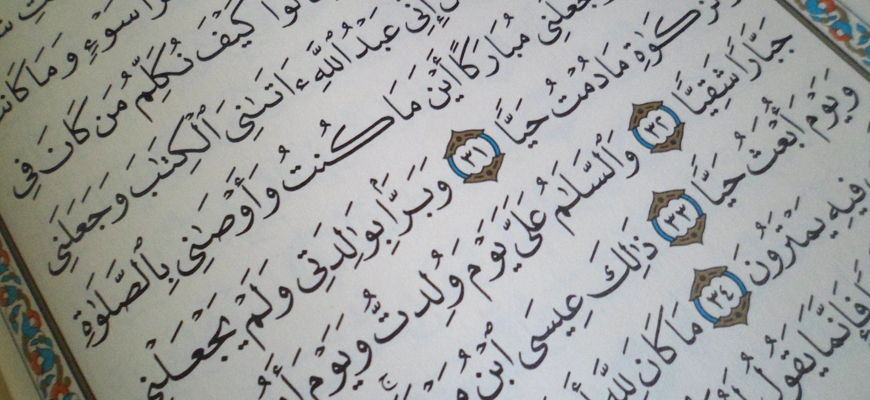 سَوْءٍ وَمَا كَانَتْ
كَيْفَ نُكَلِّمُ مَن كَانَ فِي
إِنِّي عَبْدُ ٱللَّهِ ءَاتَىٰنِيَ ٱلْكِتَٰبَ وَجَعَلَنِي
وَجَعَلَنِي مُبَارَكًا أَيْنَ مَا كُنتُ وَأَوْصَٰنِي بِٱلصَّلَوٰةِ
وَٱلزَّكَوٰةِ مَا دُمْتُ حَيًّا ٣١ وَبَرًّۢا بِوَٰلِدَتِي وَلَمْ يَجْعَلْنِي
جَبَّارًا شَقِيًّا ٣٢ وَٱلسَّلَٰمُ عَلَيَّ يَوْمَ وُلِدتُّ وَيَوْمَ
وَيَوْمَ أُبْعَثُ حَيًّا ٣٣ ذَٰلِكَ عِيسَى ٱبْنُ
فِيهِ يَمْتَرُونَ ٣٤ مَا كَانَ لِلَّهِ
فَإِنَّمَا يَقُولُ